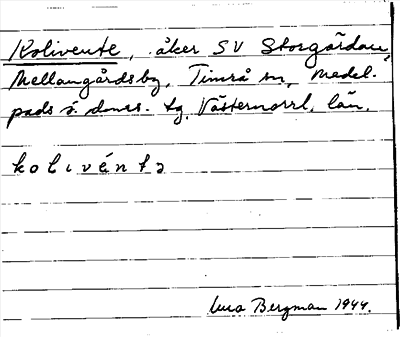 Kolivente, åker SV Storgårdau,
Mellangårdsby, Timrå sn, Medel-
pads ö. doms. tg, Västernorrl. län.
kolivénta
Bergman 1944.